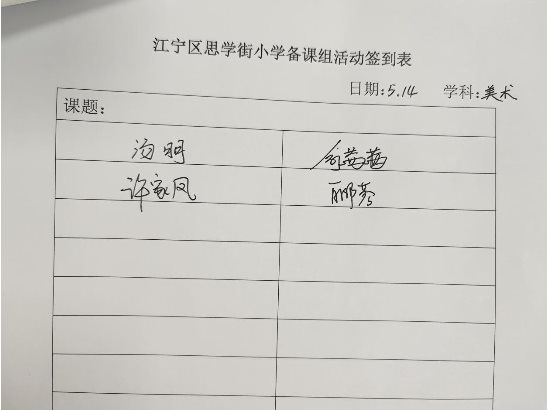 江宁区思学街小学备课组活动签到表
日期:5.14 学科:美术
课题:
汤明
许家凤 郦芬